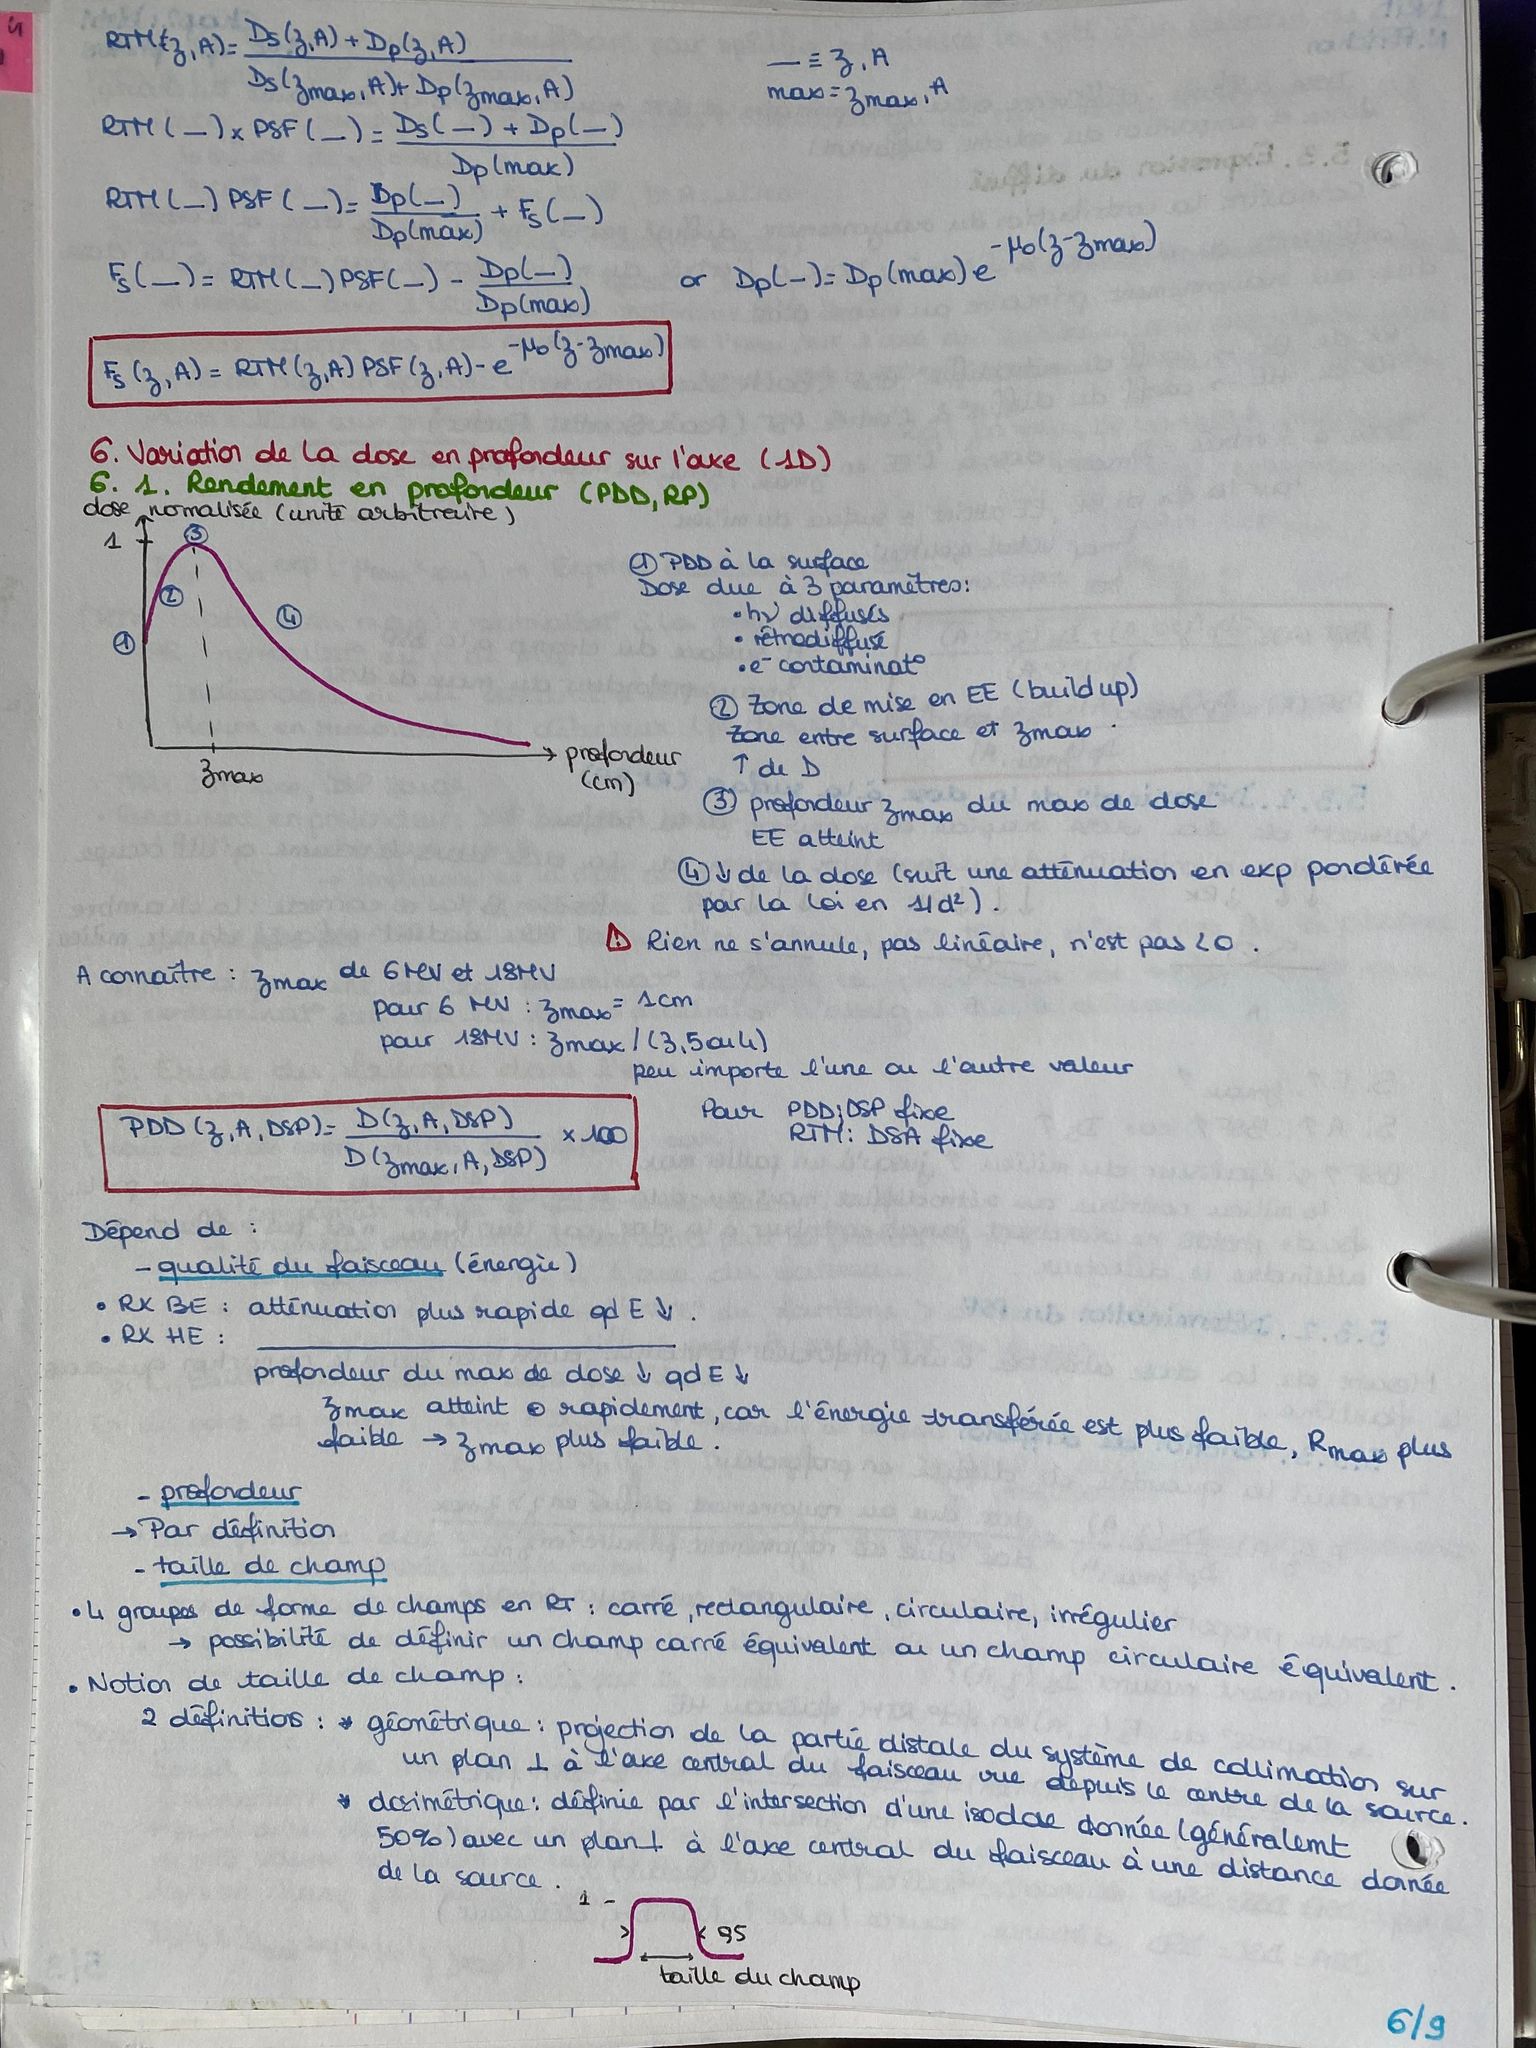 RTM(z,A) = (Ds(z,A) + Dp(z,A)) / (Ds(zmax,A) + Dp(zmax,A))
_ ≡ z,A
max = zmax,A
RTM(_) × PSF(_) = (Ds(_) + Dp(_)) / Dp(max)
RTM(_) PSF(_) = Dp(_) / Dp(max) + Fs(_)
Fs(_) = RTM(_) PSF(_) - Dp(_) / Dp(max) or Dp(_) = Dp(max) e^-μ0(z-zmax)
Fs(z,A) = RTM(z,A) PSF(z,A) - e^-μ0(z-zmax)
6. Variation de la dose en profondeur sur l'axe (1D)
6. 1. Rendement en profondeur (PDD, RP)
dose normalisée (unité arbitraire)
1
③
②
④
①
zmax
profondeur
(cm)
① PDD à la surface
Dose due à 3 paramètres:
• hν diffusés
• rétrodiffusé
• e⁻ contaminat°
② Zone de mise en EE (build up)
Zone entre surface et zmax
↑ de D
③ profondeur zmax du max de dose
EE atteint
④ ↓ de la dose (suit une atténuation en exp pondérée
par la loi en 1/d²).
! Rien ne s'annule, pas linéaire, n'est pas <0.
A connaître : zmax de 6MV et 18MV
pour 6 MV : zmax = 1cm
pour 18MV : zmax / (3,5 ou 4)
peu importe l'une ou l'autre valeur
PDD (z,A,DSP) = D(z,A,DSP) / D(zmax,A,DSP) × 100
Pour PDD: DSP fixe
RTM: DSA fixe
Dépend de :
- qualité du faisceau (énergie)
• RX BE : atténuation plus rapide qd E ↓.
• RX HE : ____________
profondeur du max de dose ↓ qd E ↓
zmax atteint ⊕ rapidement, car l'énergie transférée est plus faible, Rmax plus
faible → zmax plus faible.
- profondeur
→ Par définition
- taille de champ
• 4 groupes de forme de champs en RT : carré, rectangulaire, circulaire, irrégulier
→ possibilité de définir un champ carré équivalent ou un champ circulaire équivalent.
• Notion de taille de champ :
2 définitions : * géométrique : projection de la partie distale du système de collimation sur
un plan ⊥ à l'axe central du faisceau vue depuis le centre de la source.
* dosimétrique : définie par l'intersection d'une isodose donnée (généralemt
50%) avec un plan ⊥ à l'axe central du faisceau à une distance donnée
de la source.
1 -
> < 95
taille du champ
6/9